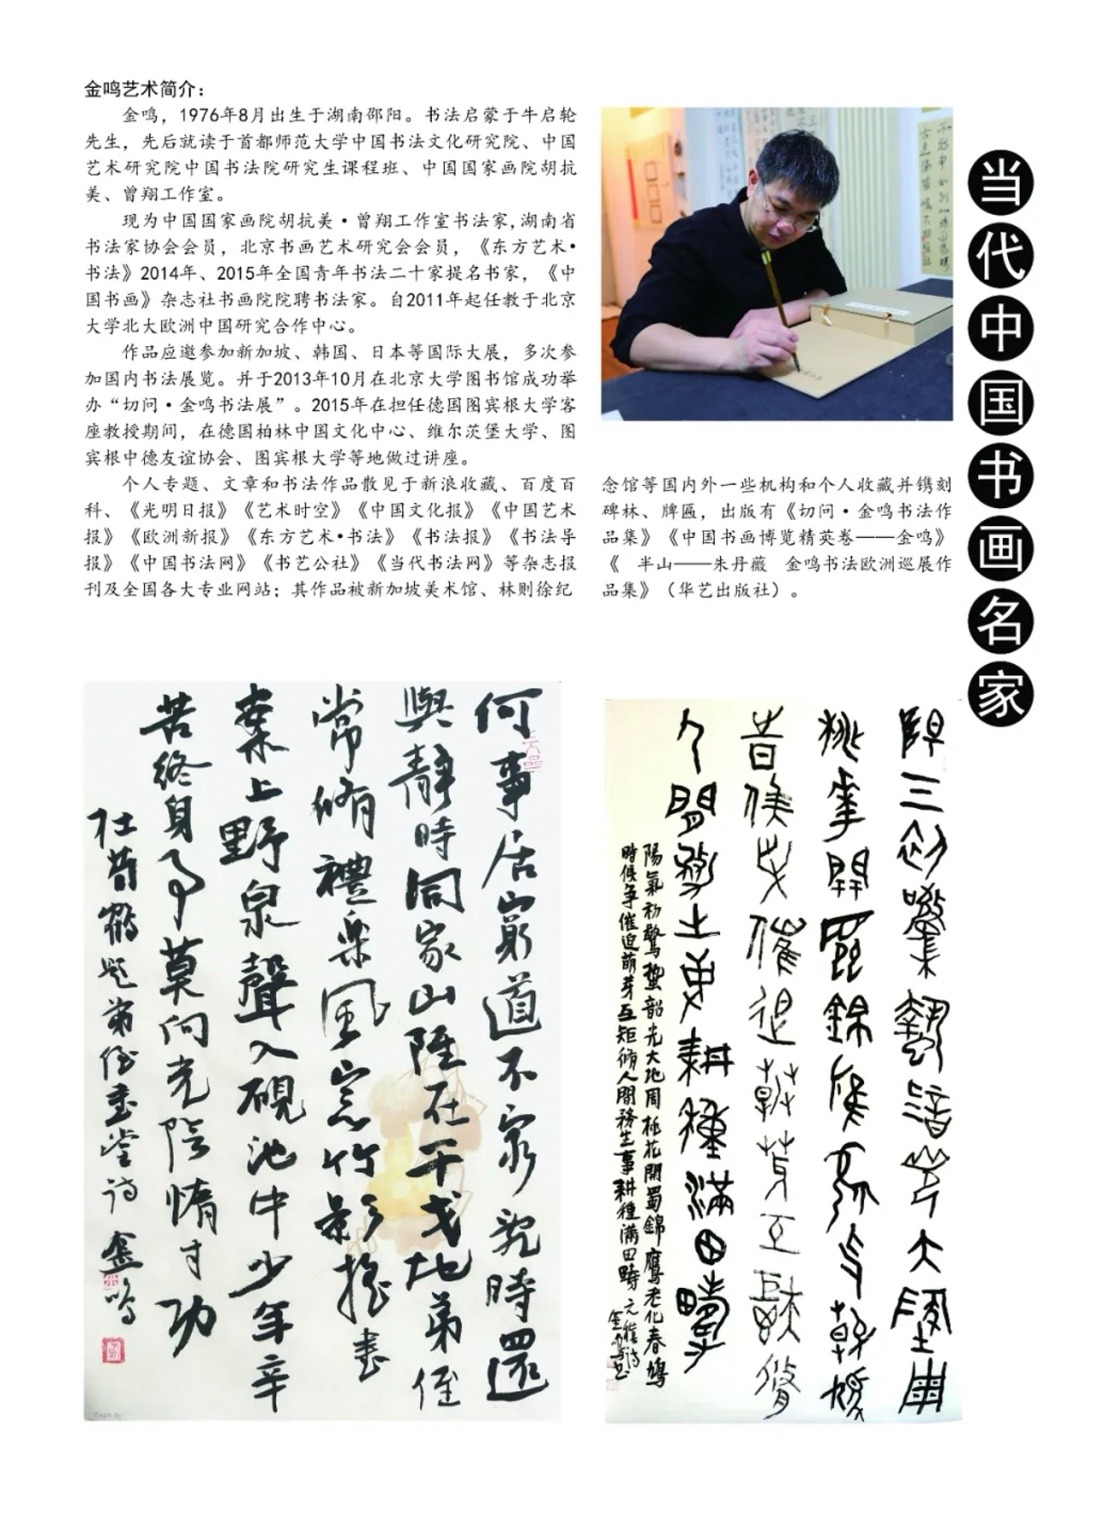 金鸣艺术简介：
金鸣，1976年8月出生于湖南邵阳。书法启蒙于牛启轮
先生，先后就读于首都师范大学中国书法文化研究院、中国
艺术研究院中国书法院研究生课程班、中国国家画院胡抗
美、曾翔工作室。
现为中国国家画院胡抗美·曾翔工作室书法家，湖南省
书法家协会会员，北京书画艺术研究会会员，《东方艺术·
书法》2014年、2015年全国青年书法二十家提名书家，《中
国书画》杂志社书画院院聘书法家。自2011年起任教于北京
大学北大欧洲中国研究合作中心。
作品应邀参加新加坡、韩国、日本等国际大展，多次参
加国内书法展览。并于2013年10月在北京大学图书馆成功举
办“切问·金鸣书法展”。2015年在担任德国图宾根大学客
座教授期间，在德国柏林中国文化中心、维尔茨堡大学、图
宾根中德友谊协会、图宾根大学等地做过讲座。
个人专题、文章和书法作品散见于新浪收藏、百度百
科、《光明日报》《艺术时空》《中国文化报》《中国艺术
报》《欧洲新报》《东方艺术·书法》《书法报》《书法导
报》《中国书法网》《书艺公社》《当代书法网》等杂志报
刊及全国各大专业网站；其作品被新加坡美术馆、林则徐纪
念馆等国内外一些机构和个人收藏并镌刻
碑林、牌匾，出版有《切问·金鸣书法作
品集》《中国书画博览精英卷——金鸣》
《 半山——朱丹薇 金鸣书法欧洲巡展作
品集》（华艺出版社）。
当代中国书画名家
何事居窮道不窮亂時還
與靜時同家山雖在干戈地弟侄
常脩禮樂風窗竹影搖書
案上野泉聲入硯池中少年辛
苦終身事莫向光陰惰寸功
杜荀鶴題弟侄書堂詩 金鳴
陽气初驚蟄韶光大地周
桃花開蜀錦鷹老化春鳩
時候爭催迫萌芽互矩脩
人間務生事耕種滿田疇
陽氣初驚蟄韶光大地周桃花開蜀錦鷹老化春鳩
時候爭催迫萌芽互矩脩人間務生事耕種滿田疇 元稹詩
金鳴書